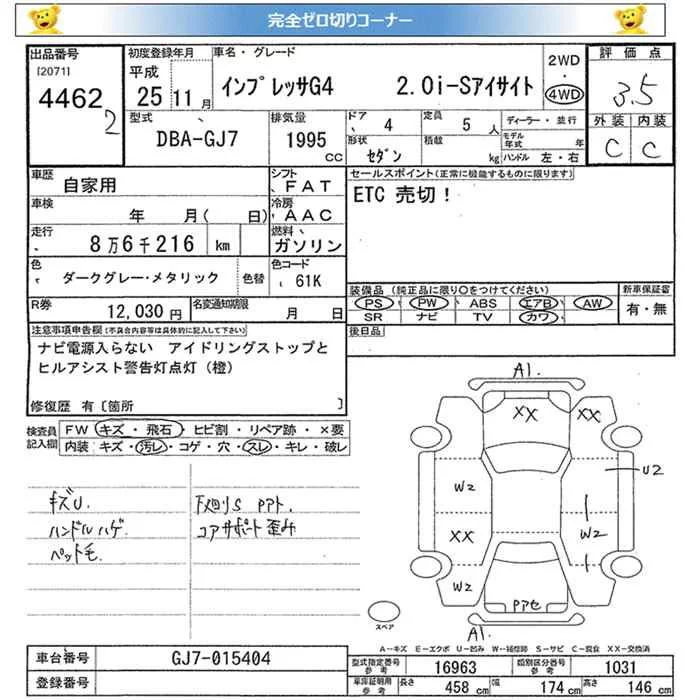 完全ゼロ切りコーナー
出品番号
[2071]
4462
2
初度登録年月
平成
25 11 月
車名・グレード
インプレッサG4 2.0i-Sアイサイト
2WD
・
4WD
評価点
3.5
外装 内装
C C
型式
DBA-GJ7
排気量
1995
CC
ドア 4
定員 5 人
ディーラー・並行
形状 セダン
積載 kg
モデル年式 年
ハンドル 左・右
車歴 自家用
シフト FAT
車検 年 月( 日)
冷房 AAC
走行 8万6千216 km
燃料 ガソリン
色 ダークグレー・メタリック 色替
色コード 61K
R券 12,030 円
名変通知期限 月 日
セールスポイント(正常に機能するものに限ります)
ETC 売切!
装備品(純正品に限り〇をつけてください)
PS・PW・ABS・エアB・AW
SR ナビ TV カワ
新車保証書
有・無
後日品
注意事項申告欄(不具合内容等は具体的に記入して下さい)
ナビ電源入らない アイドリングストップと
ヒルアシスト警告灯点灯(橙)
修復歴 有〔箇所 〕
検査員記入欄
FW キズ・飛石・ヒビ割・リペア跡・×要
内装:キズ・汚レ・コゲ・穴・スレ・キレ・破レ
キズU.
ハンドルハゲ
ペット毛.
下廻りS Pアト.
コアサポート歪み
A1.
XX XX
U2
W2
W2
XX
W2
Pアセ
A1.
スペア
A-キズ E-エクボ U-凹み W-補修跡 S-サビ C-腐食 XX-交換済
車台番号 GJ7-015404
登録番号
型式指定番号参考 16963
類別区分番号参考 1031
車庫証明用参考 長さ 458 cm 幅 174 cm 高さ 146 cm